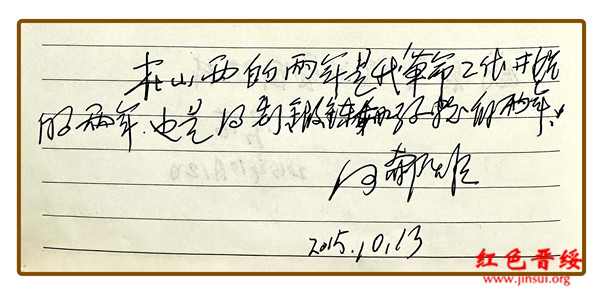 在山西的两年是我革命工作开始
的两年.也是得到锻鍊和考验的两年.
2015.10.13
红色晋绥
www.jinsui.org